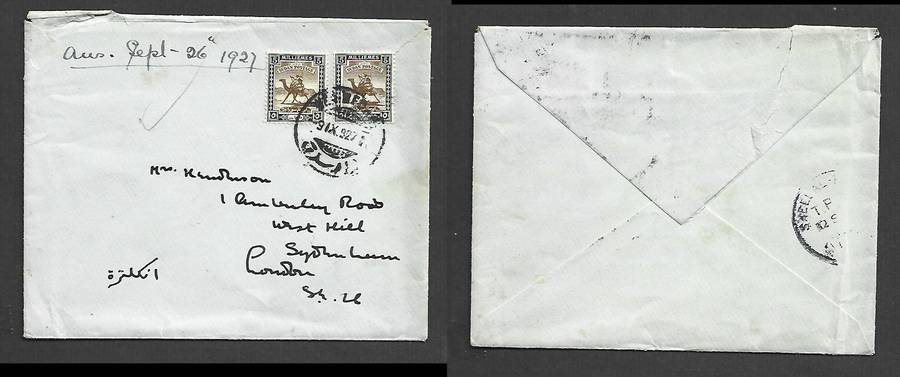 ans. Sept - 26" 1927
5 MILLIEMES 5
SUDAN POSTAGE
5 MILLIEMES 5
SUDAN POSTAGE
9 IX.927
Mrs. Henderson
1 Amberley Road
West Hill
Sydenham
London
S.E. 26
انكلترة
SHELL
T P
12 S